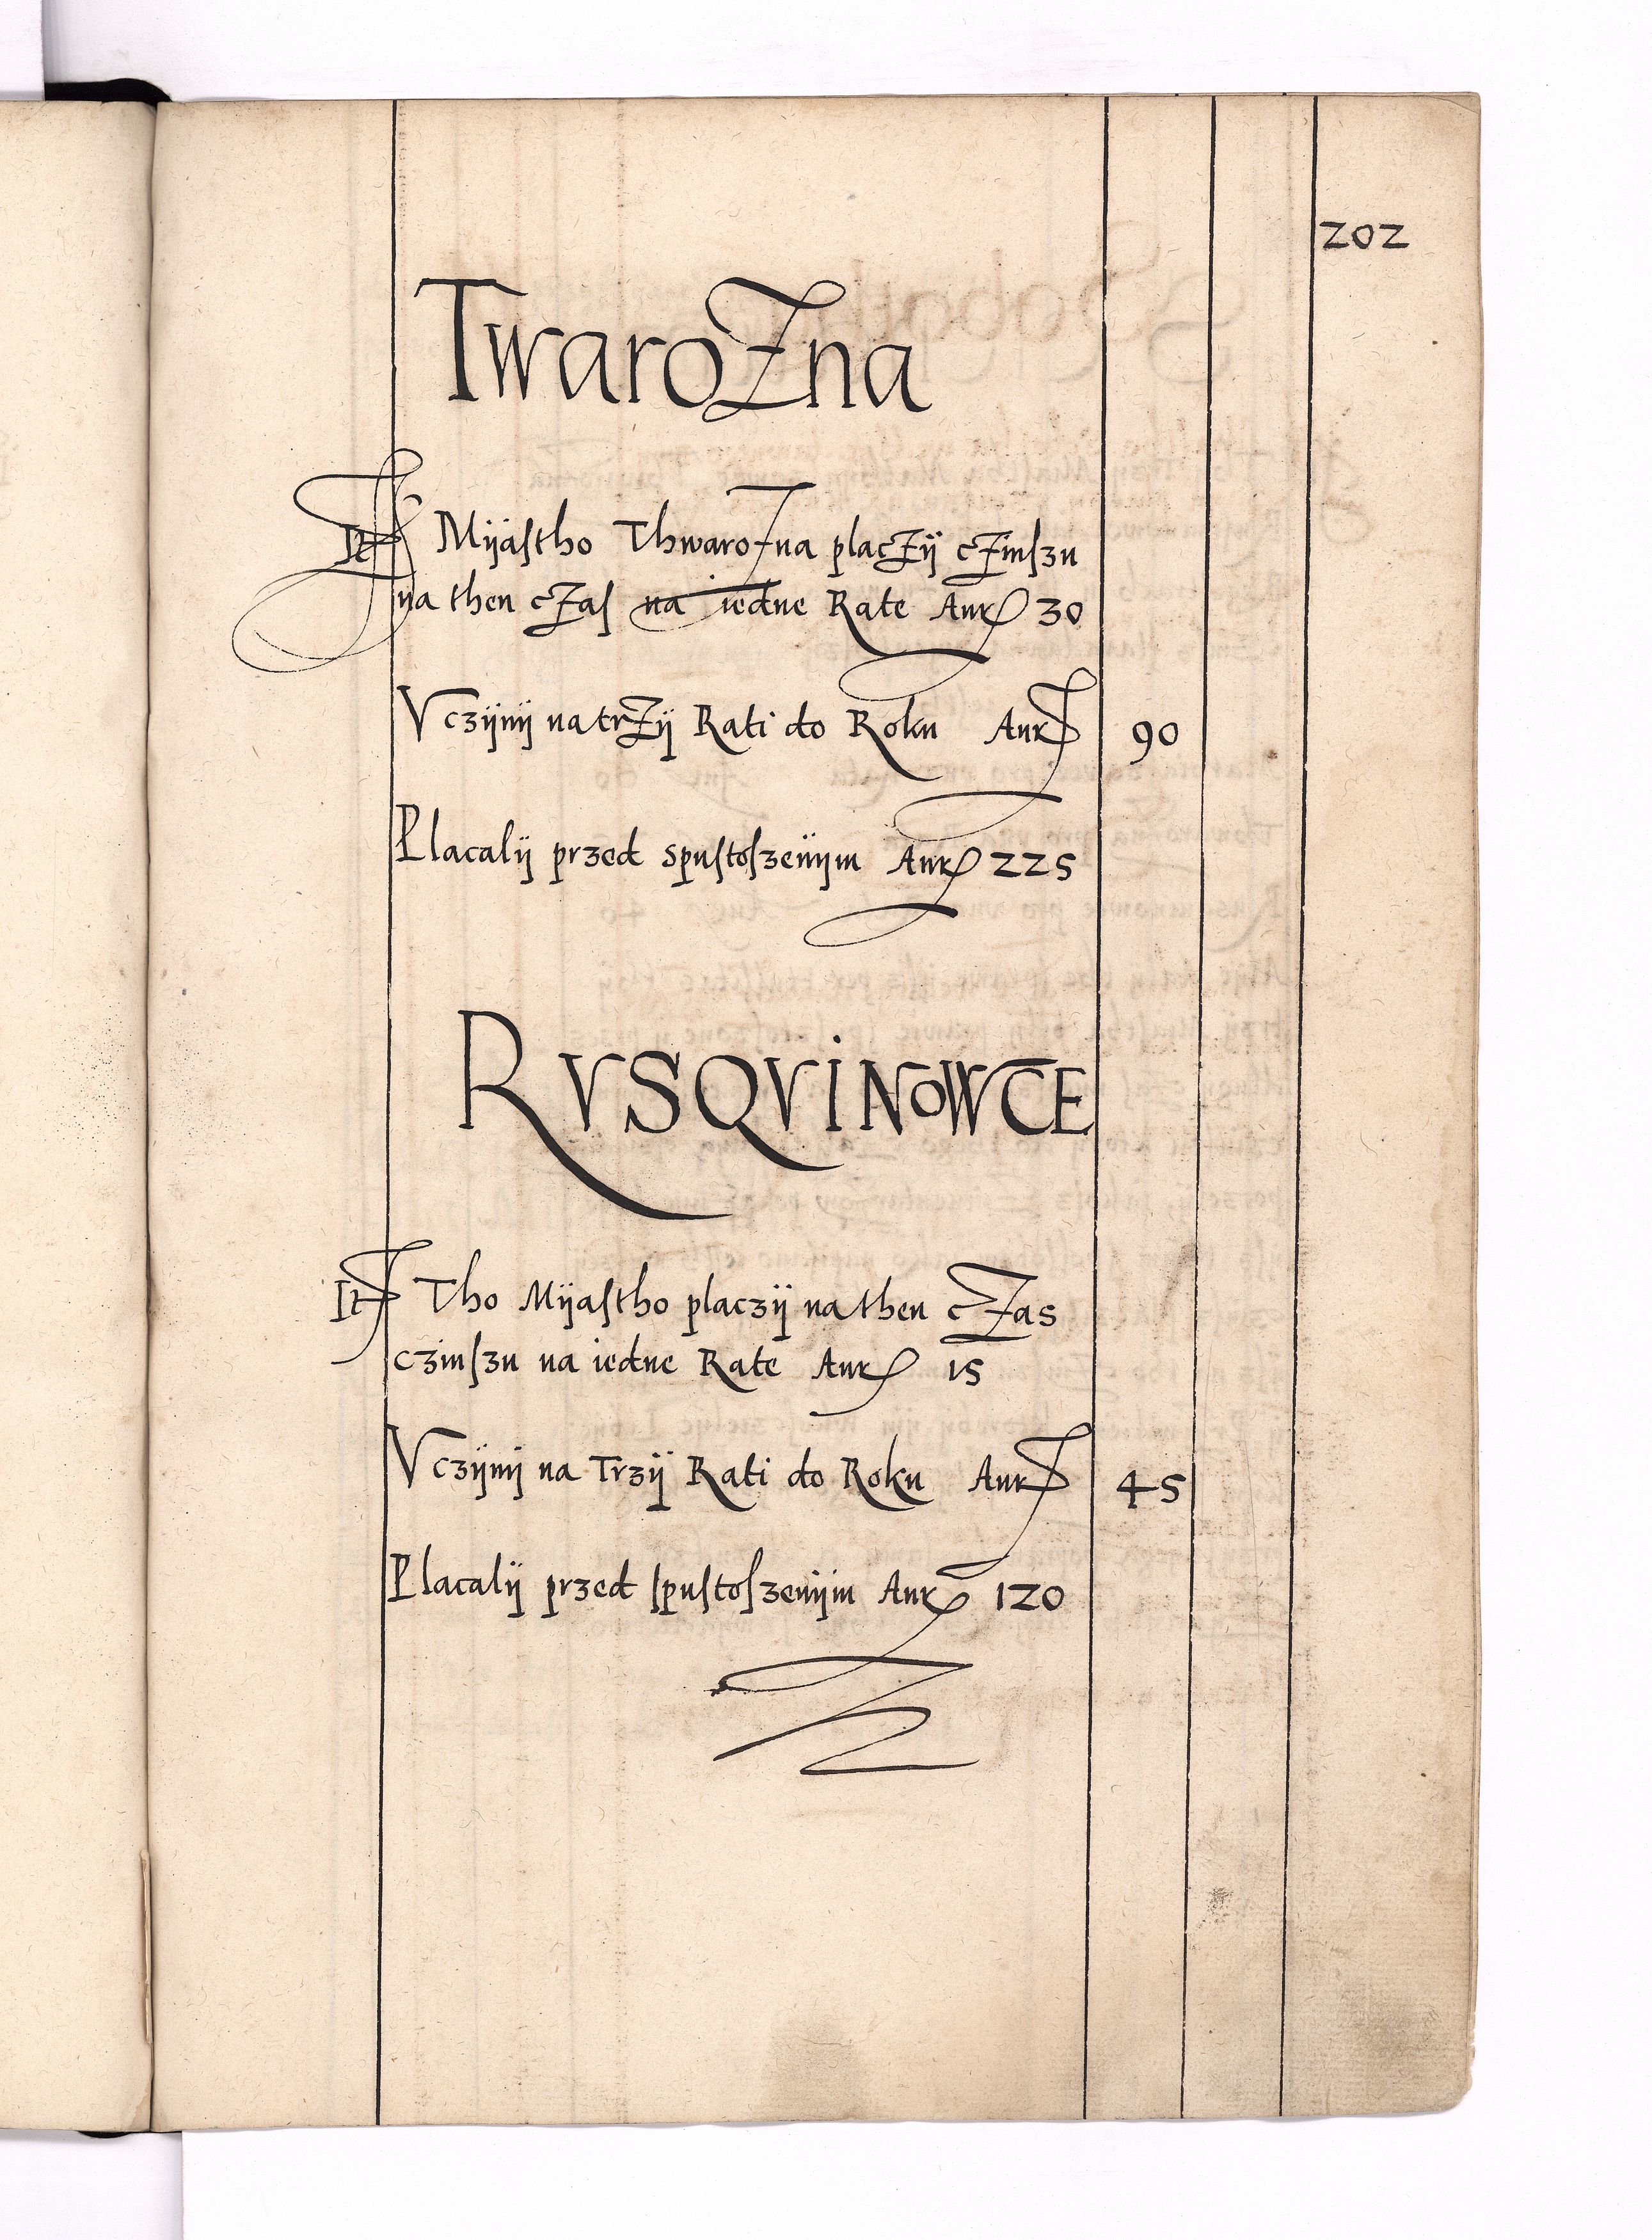 202
Twarozna
It Mÿasthο Thwarozna placzÿ czinszu
na then czas na iedne Rate Aur 30
Vczÿnÿ na trzÿ Rati do Roku Aur 90
Placalÿ przed spustoszenÿm Aur 225
RVSQVINOWCE
It Tho Mÿastho placzÿ na then czas
czinszu na iedne Rate Aur 15
Vczÿnÿ na Trzÿ Rati do Roku Aur 45
Placalÿ przed spustoszenÿm Aur 120